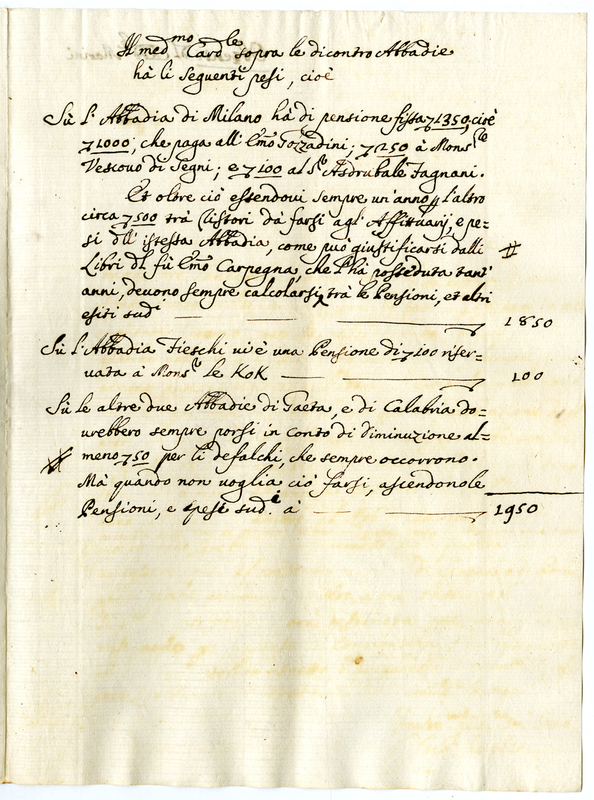 Il med.mo Card.le sopra le dicontro Abbadie
hà li seguenti pesi, cioè
Sù l'Abbadia di Milano hà di pensione fissa ▽1350, cioè
▽1000, che paga all'Em̃o Gozzadini; ▽250 à Mons.re
Vescovo di Segni; e ▽100 al S.r Asdrubale Fagnani.
Et oltre ciò essendovi sempre un'anno p l'altro
circa ▽500 trà Ristori da farsi agl'Affittuarij, e pe=
si dll'istessa Abbadia, come può giustificarsi dalli
Libri dl fù Em̃o Carpegna, che l'hà posseduta tant'
anni, devono sempre calcolarsi trà le Pensioni, et altri
esiti sud.i 1850
Sù l'Abbadia Fieschi vi è una Pensione di ▽100 riser=
vata à Mons.r le Kok 100
Sù le altre due Abbadie di Gaeta, e di Calabria do=
vrebbero sempre porsi in conto di diminuzione al=
meno ▽50 per li defalchi, che sempre occorrono.
Mà quando non voglia ciò farsi, ascendono le
Pensioni, e spese sud.e à 1950